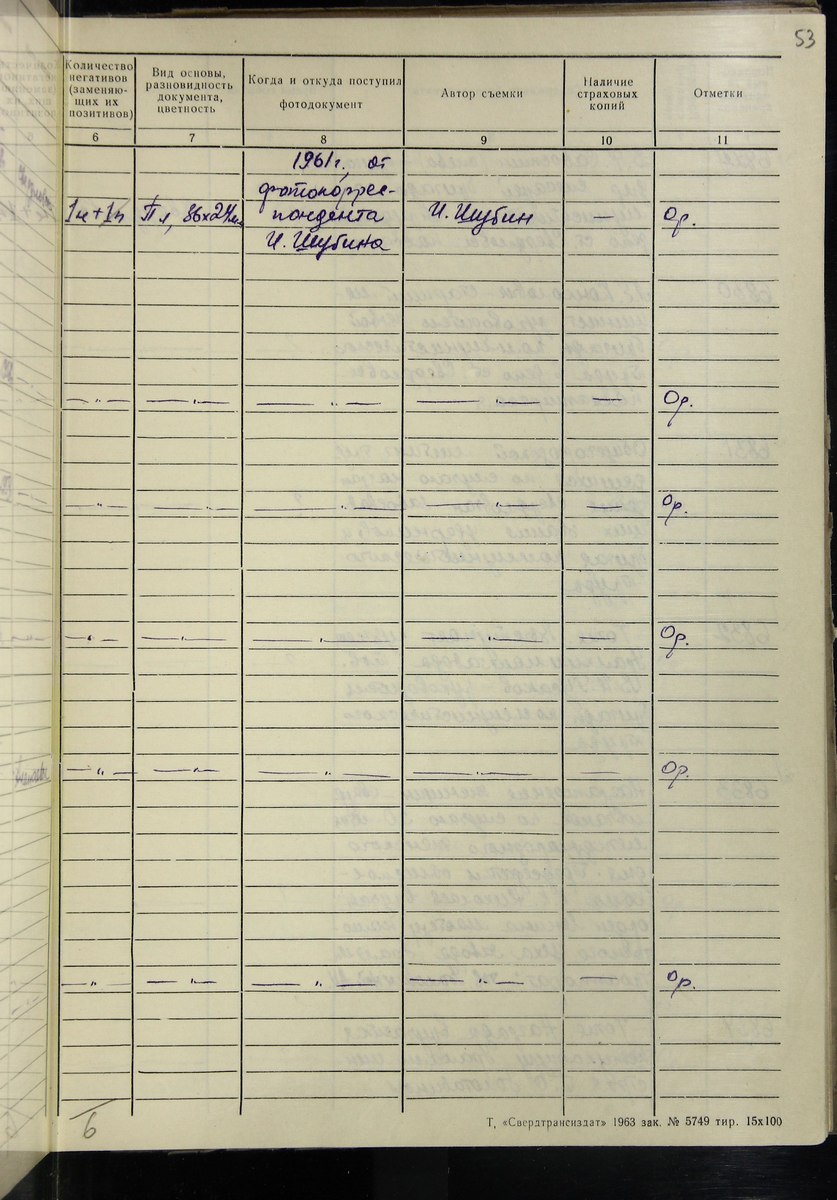 53
Количество негативов (заменяю-щих их позитивов) Вид основы, разновидность документа, цветность Когда и откуда поступил фотодокумент Автор съемки Наличие страховых копий Отметки
6 7 8 9 10 11
1961г. от
фотокоррес-
1н+1п Пл, 36х24мм пондента И. Шубин — Ор.
И. Шубина
—„— —„— —„— —„— — Ор.
—„— —„— —„— —„— — Ор.
—„— —„— —„— —„— — Ор.
—„— —„— —„— —„— — Ор.
—„— —„— —„— —„— — Ор.
6
Т, «Свердтрансиздат» 1963 зак. № 5749 тир. 15х100